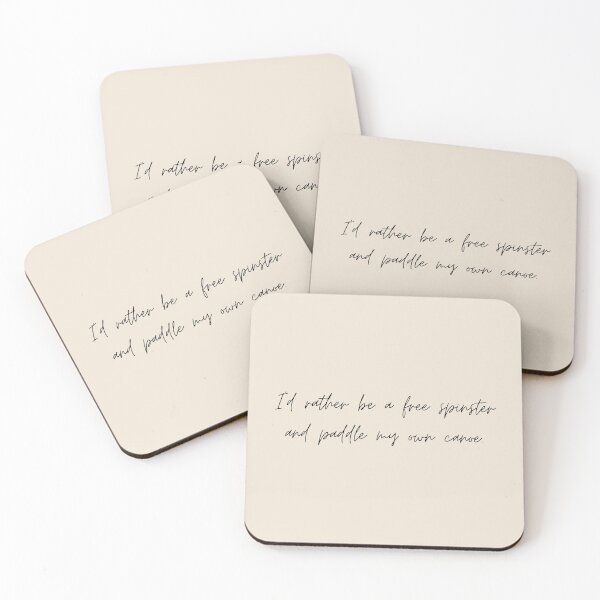 I'd rather be a free
I'd rather be a free spinster
and paddle my own canoe
I'd rather be a free spinster
and paddle my own canoe
I'd rather be a free spinster
and paddle my own canoe